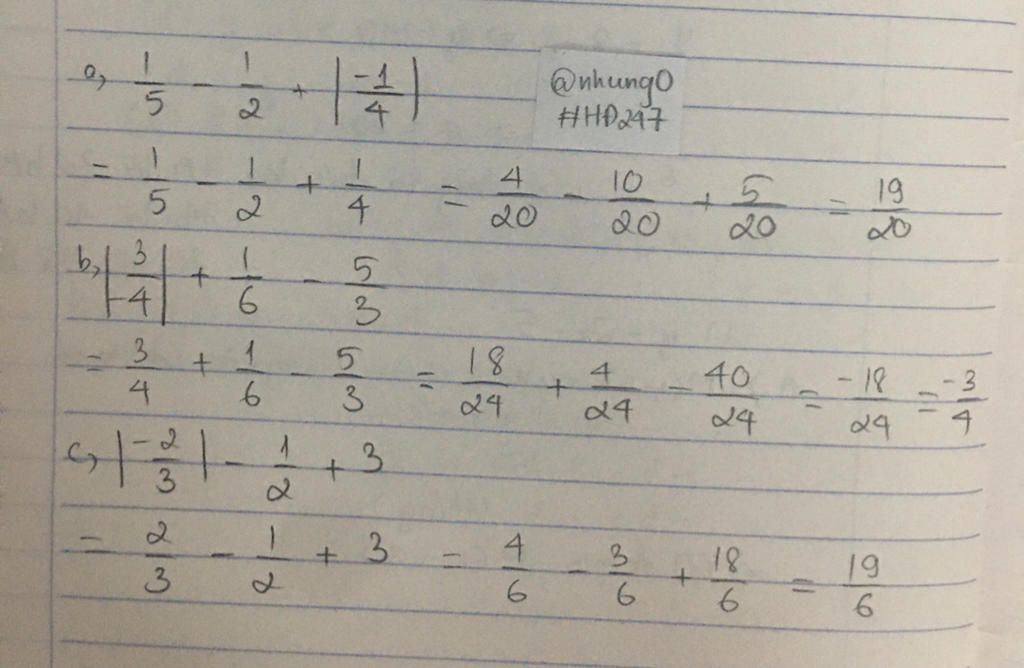 a, 1/5 - 1/2 + |-1/4|
@nhung0
#HD247
= 1/5 - 1/2 + 1/4 = 4/20 - 10/20 + 5/20 = 19/20
b, |3/-4| + 1/6 - 5/3
= 3/4 + 1/6 - 5/3 = 18/24 + 4/24 - 40/24 = -18/24 = -3/4
c, |-2/3| - 1/2 + 3
= 2/3 - 1/2 + 3 = 4/6 - 3/6 + 18/6 = 19/6